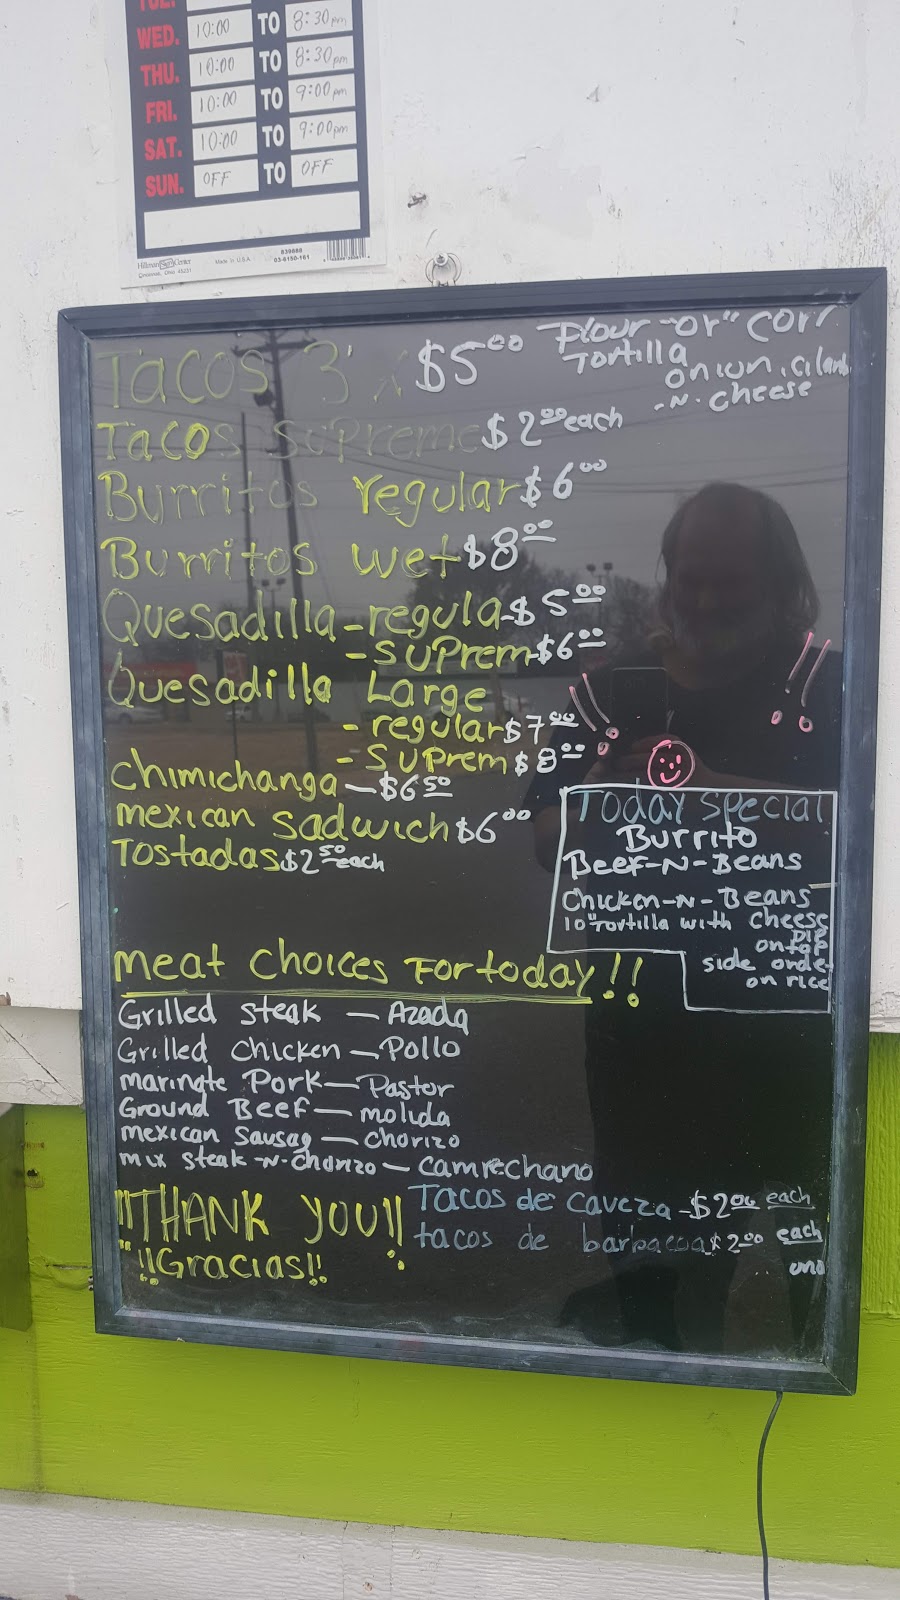 TUE.
WED. 10:00 TO 8:30pm
THU. 10:00 TO 8:30pm
FRI. 10:00 TO 9:00pm
SAT. 10:00 TO 9:00pm
SUN. OFF TO OFF
Hillman Sign Center
Cincinnati, Ohio 45231
Made in U.S.A.
839888
03-6150-161
Tacos 3 x $5.00 Flour "or" Corr
Tortilla
onion, cilant
-N- cheese
Tacos Supreme $2.00 each
Burritos regular $6.00
Burritos wet $8.00
Quesadilla - regula $5.00
- Suprem $6.00
Quesadilla Large
- regular $7.00
- Suprem $8.00
Chimichanga - $6.50
mexican Sadwich $6.00
Tostadas $2.50 each
Today Special
Burrito
Beef-N-Beans
Chicken-N-Beans
10" Tortilla with cheese
Dip
on top
side order
on rice
meat choices For today!!
Grilled steak — Azada
Grilled Chicken — Pollo
marinate Pork — Pastor
Ground Beef — molida
mexican Sausag — Chorizo
mix steak -N- Chorizo — Camrechano
"THANK YOU!!
!!Gracias!!
Tacos de Caveza - $2.00 each
tacos de barbacoa $2.00 each
uno